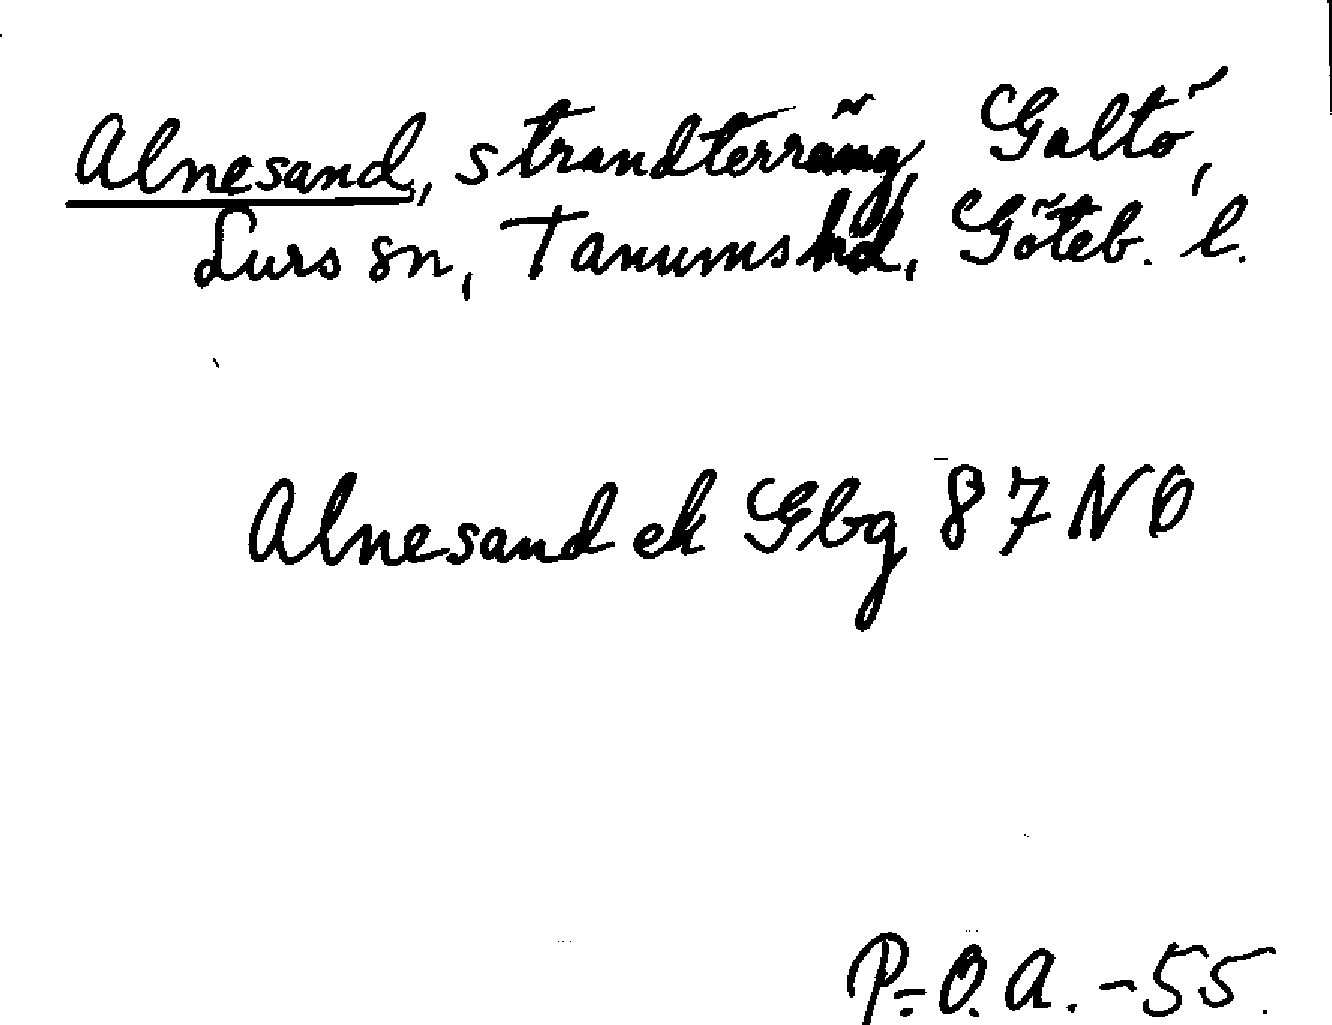 Alnesand, strandterräng, Galtö,
Lurs sn, Tanums hd, Göteb. l.
Alnesand ek Gbg 87 NO
P.-O.A. -55.